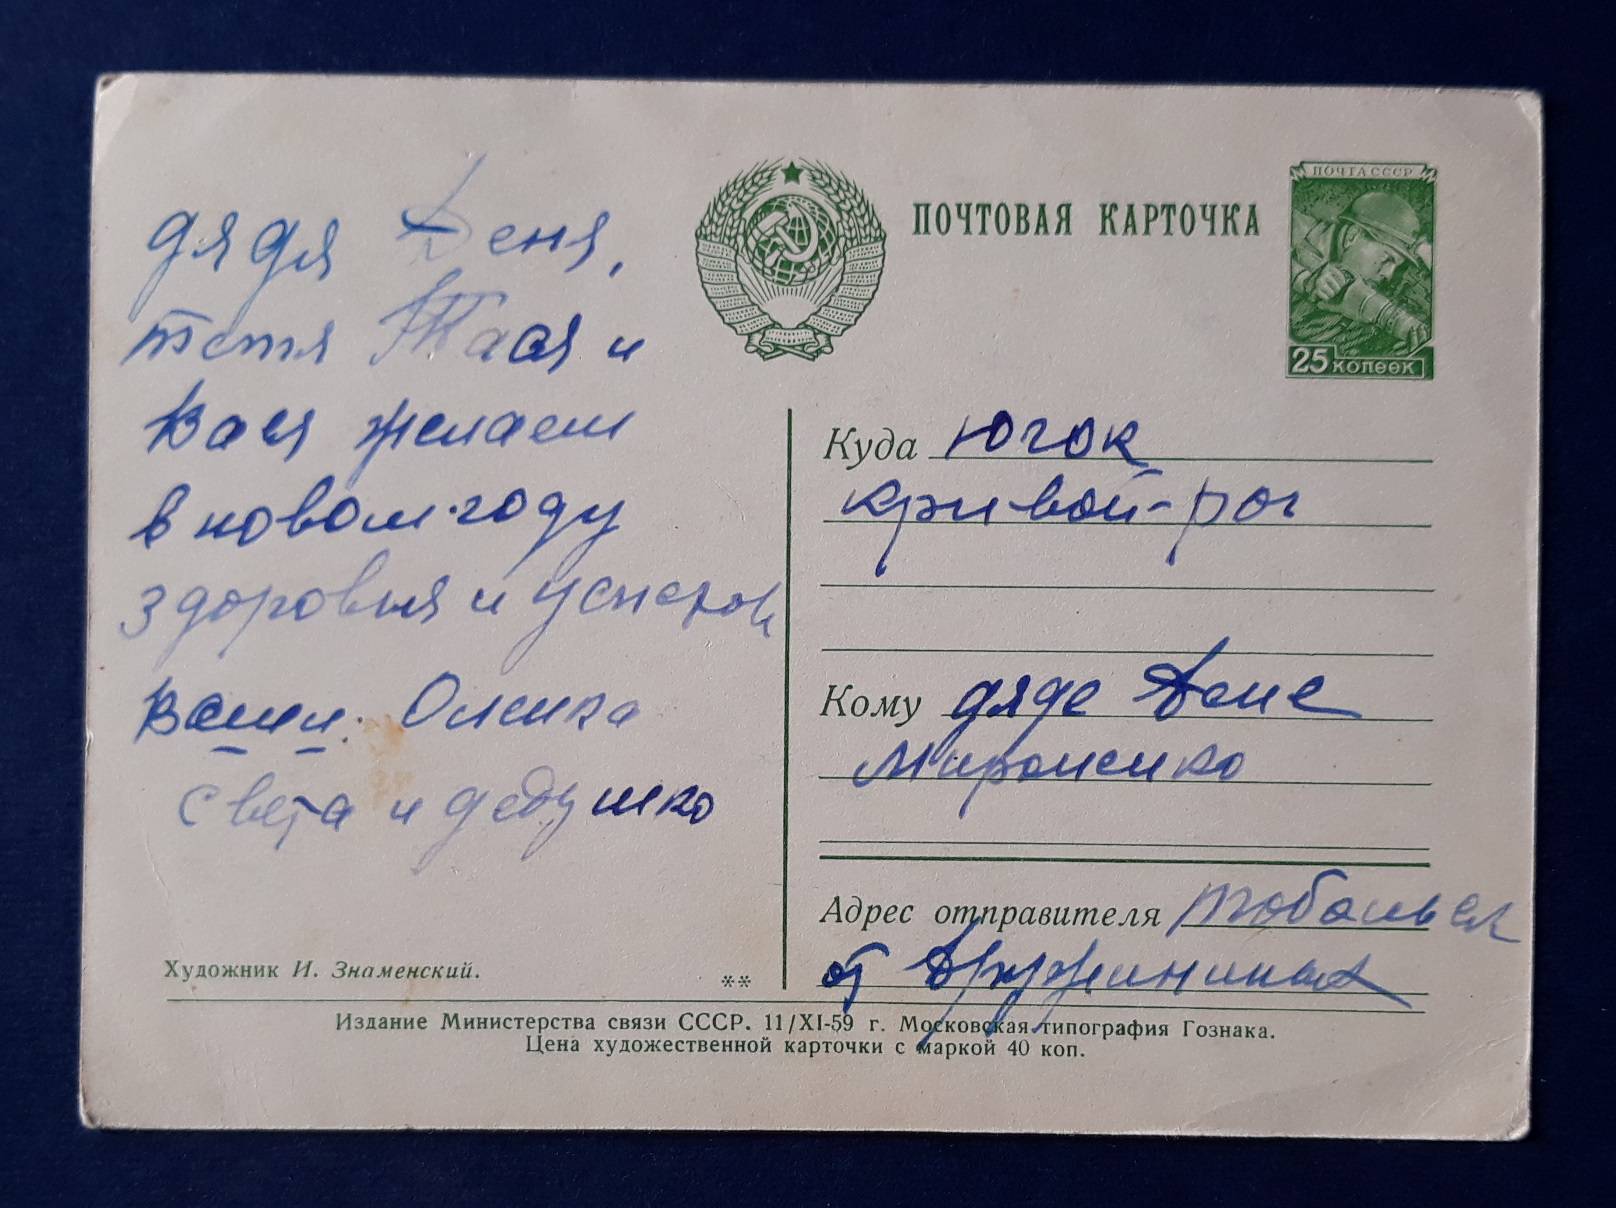 ПОЧТОВАЯ КАРТОЧКА
ПОЧТА СССР
25 КОПЕЕК
дядя Деня,
тетя Тася и
Вася желаем
в новом году
здоровья и успехов
Ваши. Оленка
Света и дедушко
Куда Югок
кривой-рог
Кому дяде Дене
Мироненко
Адрес отправителя
от Дружининых
Художник И. Знаменский.
**
Издание Министерства связи СССР. 11/XI-59 г. Московская типография Гознака.
Цена художественной карточки с маркой 40 коп.